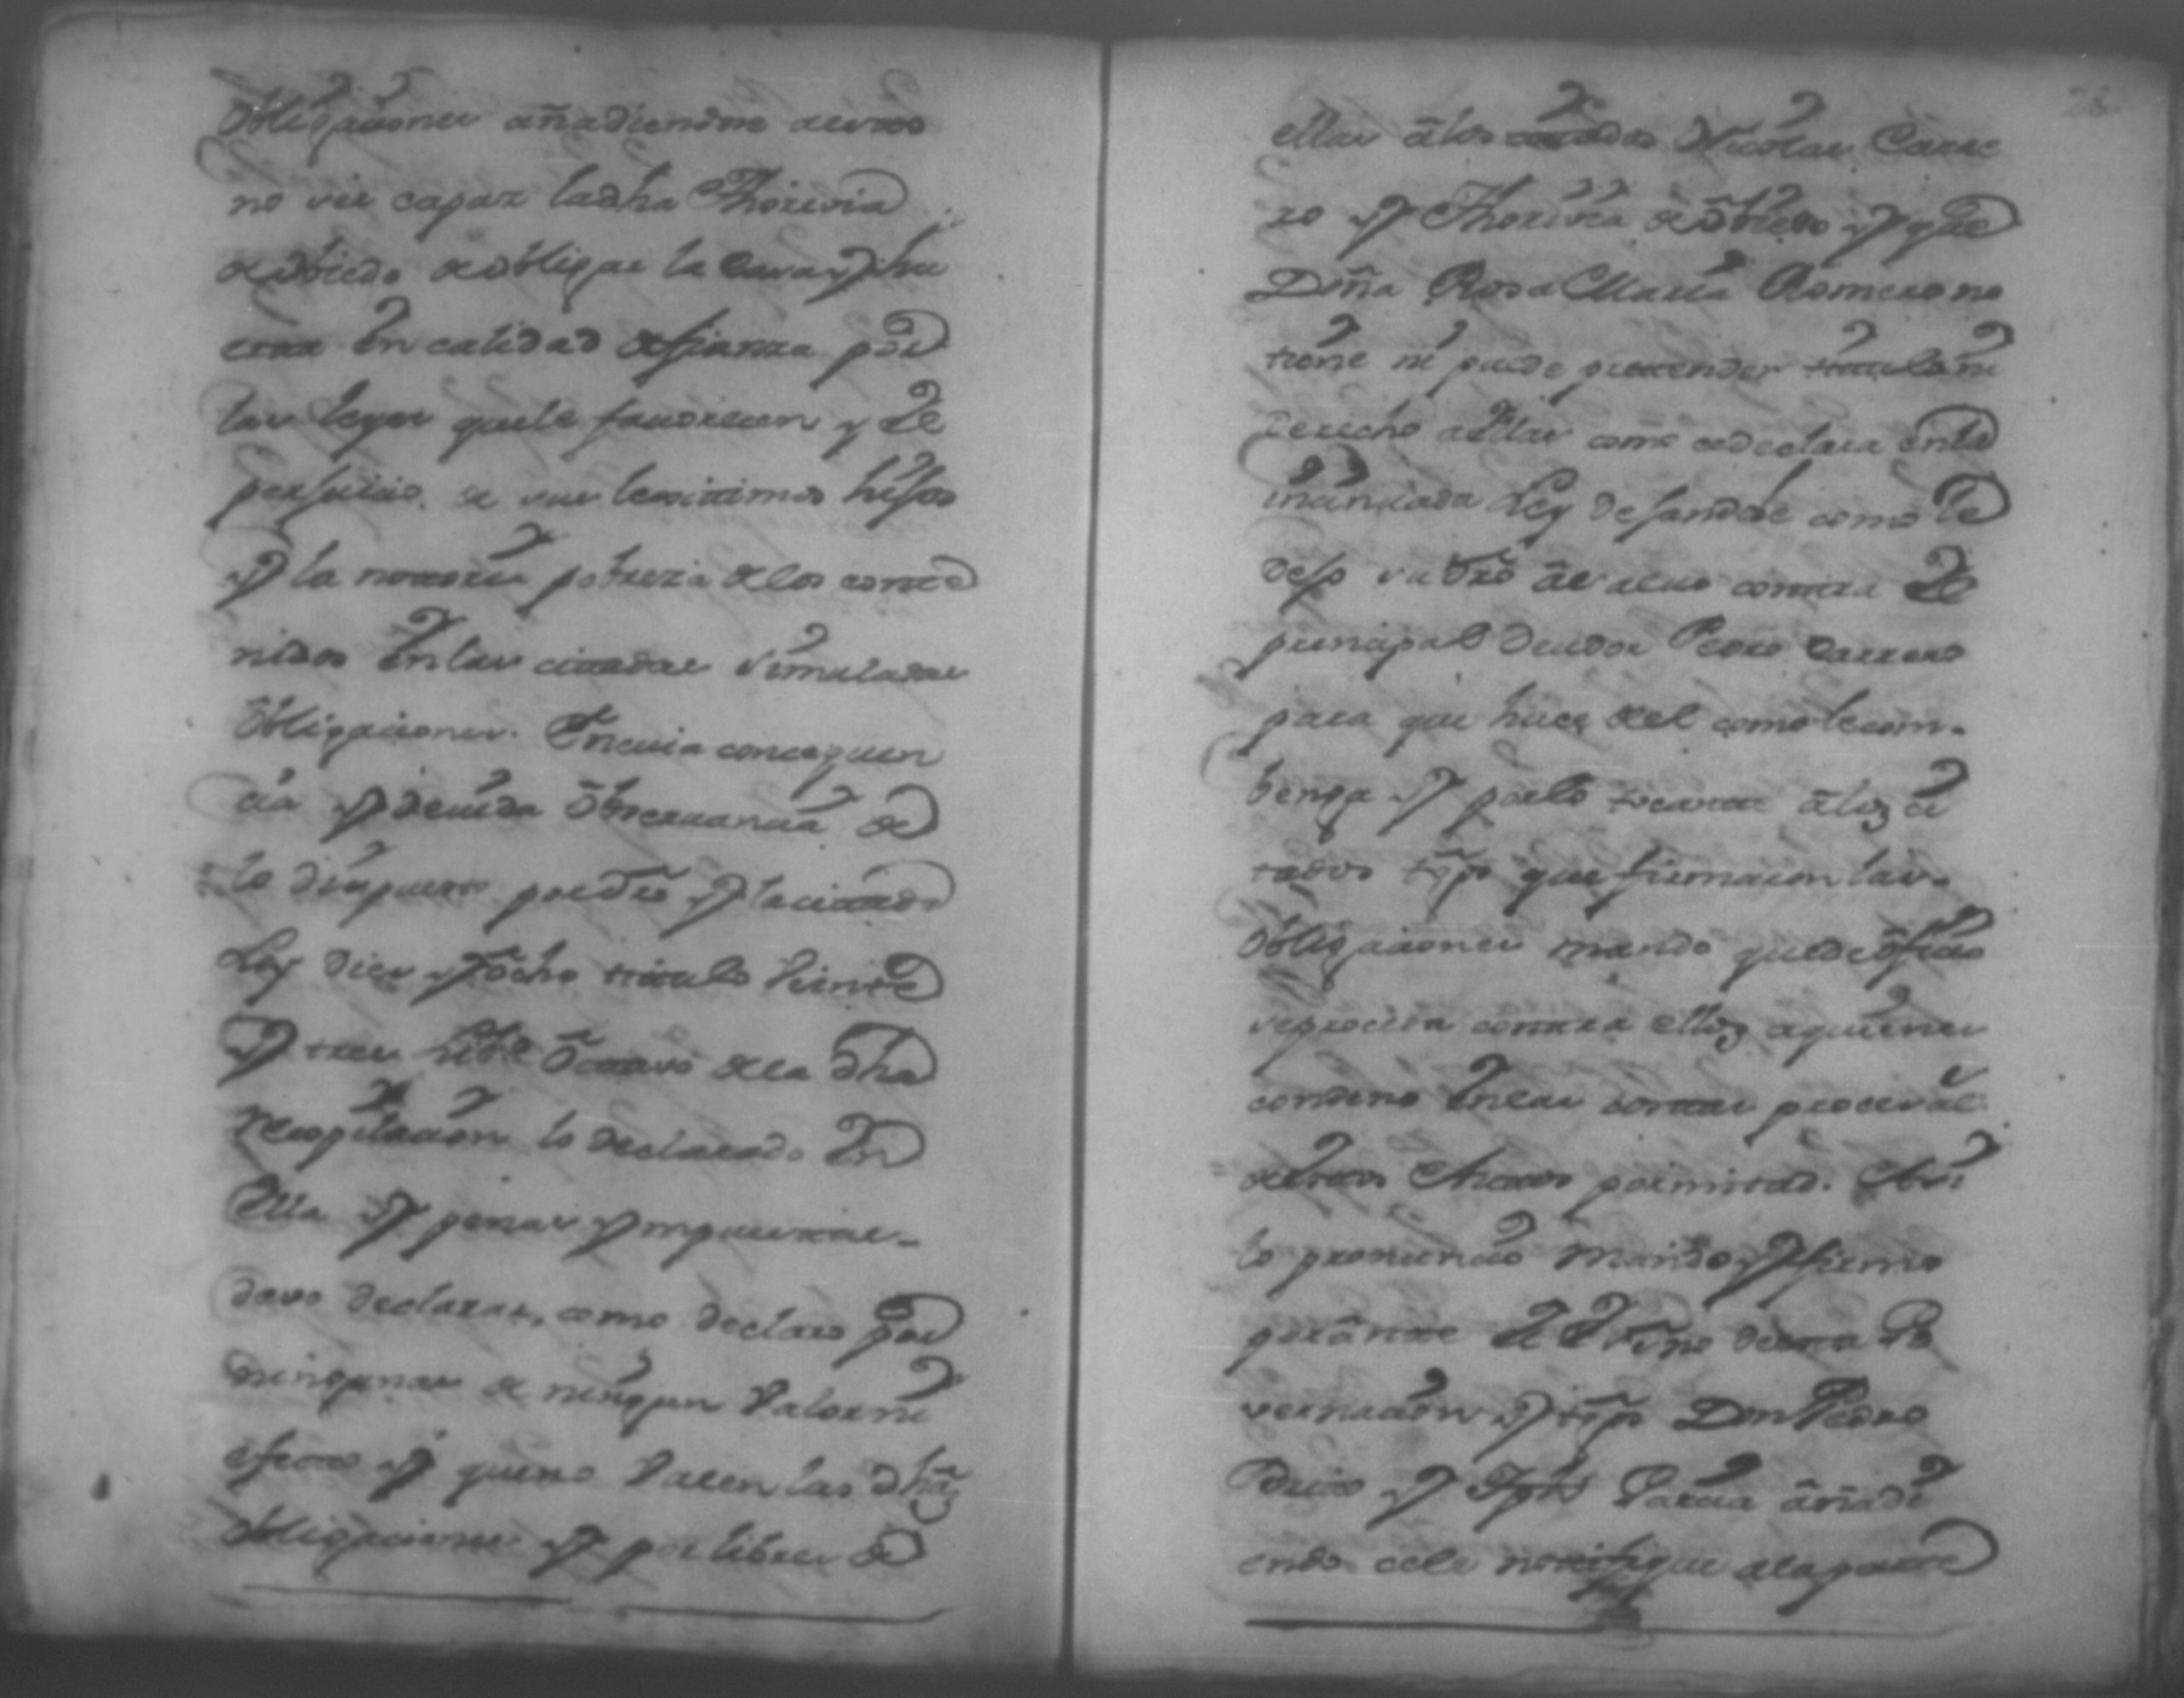 Obligaciones añadiendose a esto
no ser capaz la dha Thorivia
de obiedo de obligar la Casa y hu
erta En calidad de fianza por
las leyes que le favorecen y De
perjuicio de sus lexitimos hijos
y la notoria pobreza de los conte
nidos En las citadas simuladas
Obligaciones. En cuia consequen
cia y devida observancia de
lo dispuesto por dro y la citada
Ley Diez y ocho titulo Veinte
y tres libº Octavo de la dha
recopilacion lo declarado En
Ella y penas ympuestas-
devo declarar, como declaro por
ningunas de ningun Valor ni
efecto y que no Valen las dhas
obligaciones y por libres de
28
ellas a los citados Nicolas Carre
ro y Thorivia de obiedo y que
Doña Rosa Maria Romero no
tiene ni puede pretender titulo ni
Derecho a Ellas como se declara en la
insinuada Ley dejandole como le
dejo su dro a salvo contra El
principal Deudor Pedro Carrero
para que huse del como le com-
benga y por lo tocante a los ci
tados tgos que firmaron las
Obligaciones mando que de oficio
se proceda contra ellos a quienes
condeno En las costas procesales
de estos Autos por mitad. Asi
lo pronuncio mando y firmo
por ante El Essno de esta Go
vernacion y tgos Don Pedro
y Garcia añadi
endo se le notifique a la parte